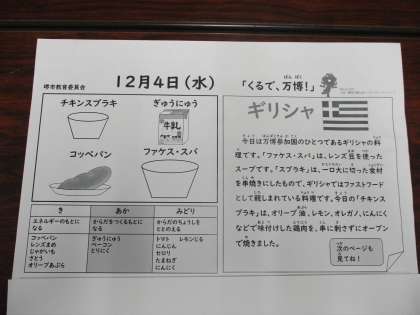 堺市教育委員会
12月4日(水)
「くるで、万博!」
チキンスブラキ
ぎゅうにゅう
牛乳
コッペパン
ファケス・スパ
き
あか
みどり
エネルギーのもとに
なる
からだをつくるもとに
なる
からだのちょうしを
ととのえる
コッペパン
レンズまめ
じゃがいも
さとう
オリーブあぶら
ぎゅうにゅう
ベーコン
とりにく
トマト レモンじる
にんじん
セロリ
たまねぎ
にんにく
ギリシャ
今日は万博参加国のひとつであるギリシャの料
理です。「ファケス・スパ」は、レンズ豆を使った
スープです。「スブラキ」は、一口大に切った食材
を串焼きにしたもので、ギリシャではファストフード
として親しまれている料理です。今日の「チキンス
ブラキ」は、オリーブ油、レモン、オレガノ、にんにく
などで味付けした鶏肉を、串に刺さずにオーブン
で焼きました。
次のページも
見てね!